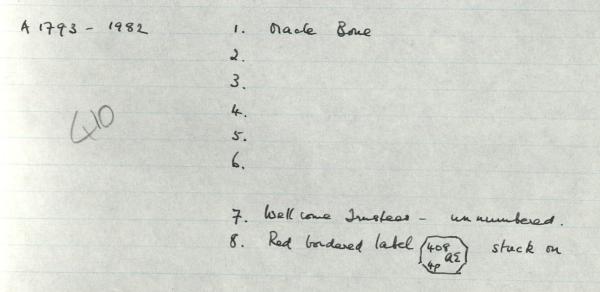 A 1793 - 1982
1. Oracle Bone
2.
3.
410
4.
5.
6.
7. Wellcome Trustees - unnumbered.
8. Red bordered label 408 stuck on